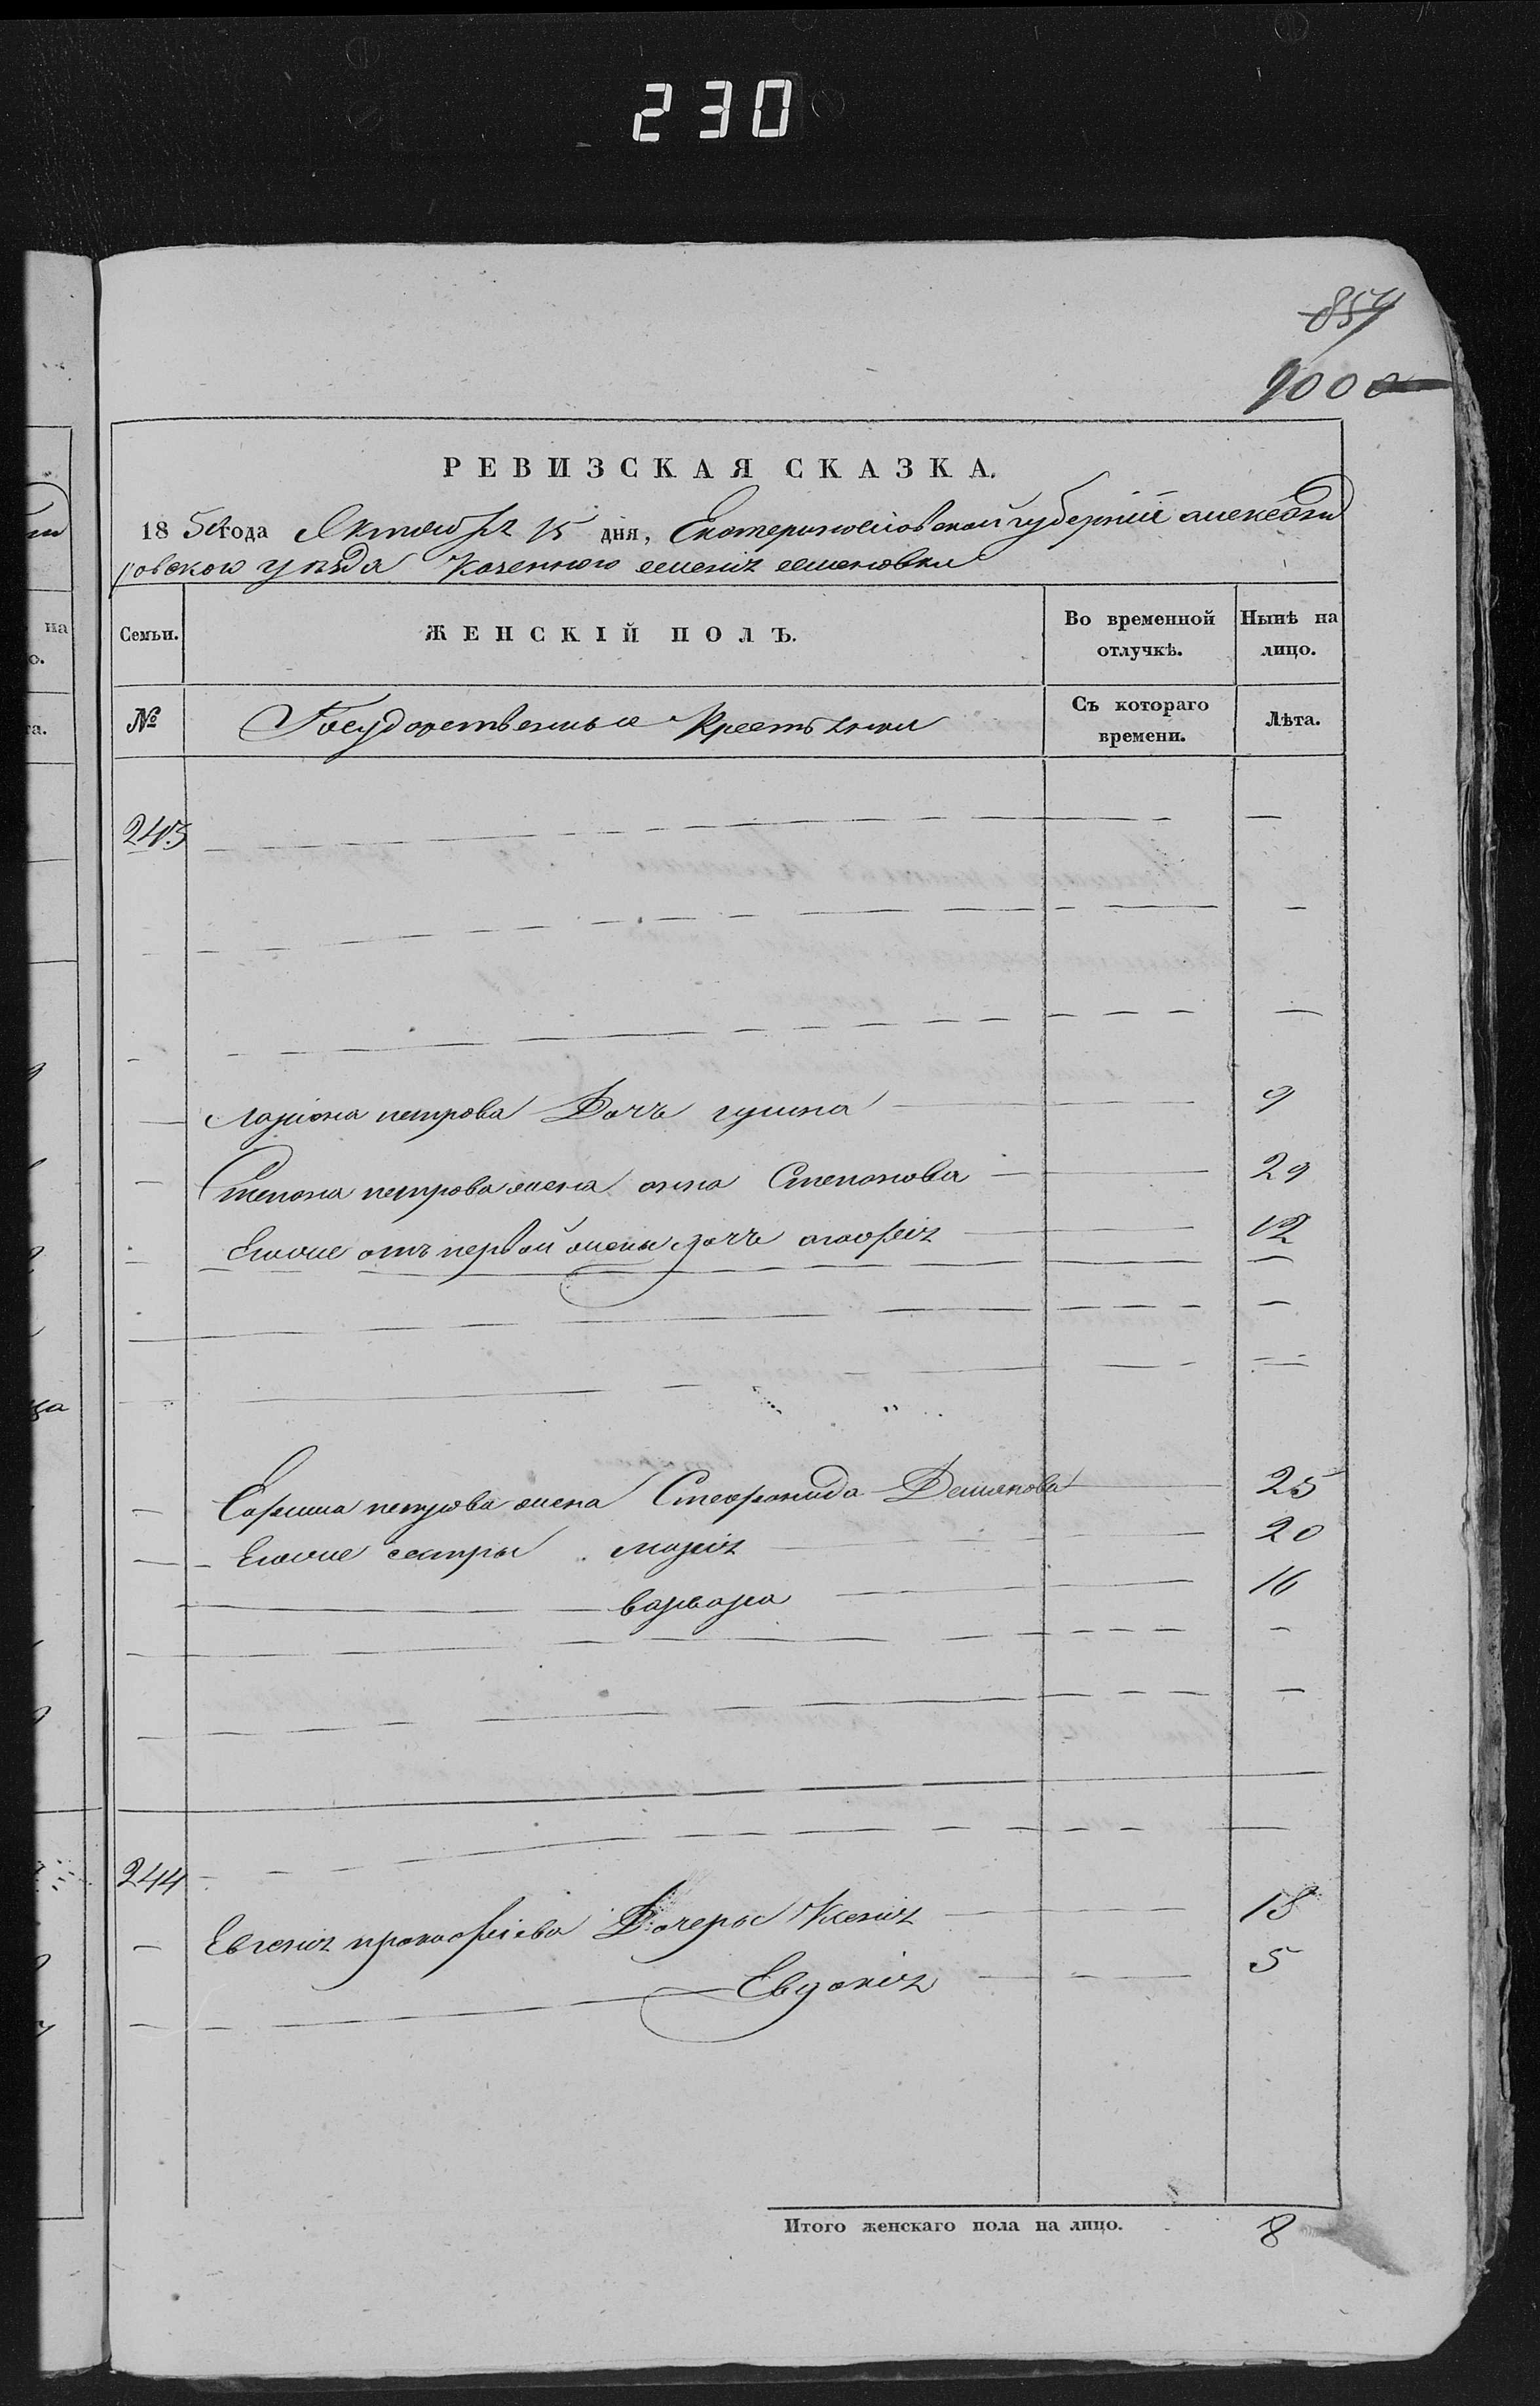 230
857
900
РЕВИЗСКАЯ СКАЗКА.
18 50 года Октября 15 дня, Екатеринославской губерніи александ
ровскаго уѣзда Казенного селенія семеновки
Семьи. ЖЕНСКІЙ ПОЛЪ. Во временной отлучкѣ. Нынѣ на лицо.
№ Государственные Крестьянки Съ котораго времени. Лѣта.
243
Лариона петрова Дочь 9
Степана петрова жена анна Степанова 29
Егоже отъ первой жены дочь агафія 12
петрова жена Стефанида Демянова 25
Егоже сестры марія 20
варвара 16
244
Евгенія прокофіева Дочеры Ксенія 18
Евдокія 5
Итого женскаго пола на лицо. 8